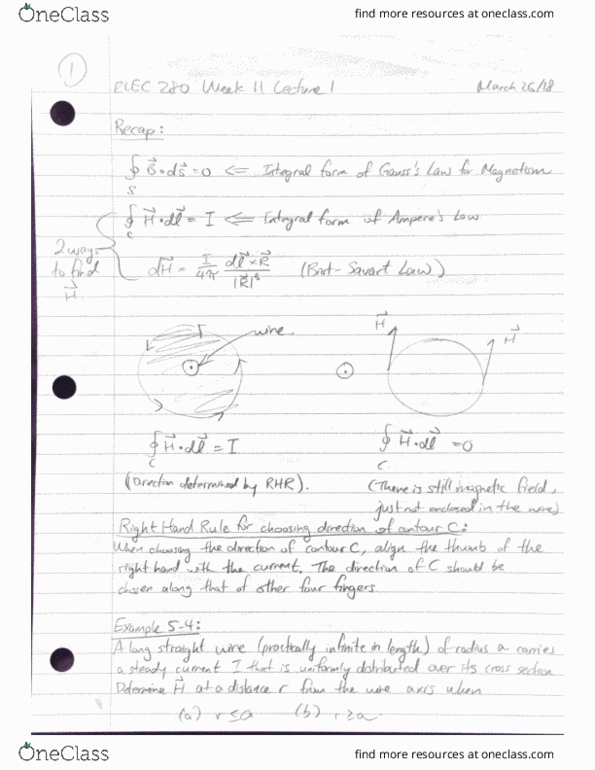 OneClass find more resources at oneclass.com
1
ELEC 280 Week 11 Lecture 1 March 26/18
Recap:
∮_S B⃗·ds⃗ = 0 ⇐ Integral form of Gauss's Law for Magnetism
∮_C H⃗·dl⃗ = I ⇐ Integral form of Ampere's Law
2 ways to find H⃗
dH⃗ = I/4π dl⃗×R⃗/|R⃗|³ (Biot-Savart Law)
wire H⃗ H⃗
∮_C H⃗·dl⃗ = I ∮_C H⃗·dl⃗ = 0
(Direction determined by RHR). (There is still magnetic field,
just not enclosed in the wire)
Right Hand Rule for choosing direction of contour C:
When choosing the direction of contour C, align the thumb of the
right hand with the current. The direction of C should be
chosen along that of other four fingers.
Example 5-4:
A long straight wire (practically infinite in length) of radius a carries
a steady current I that is uniformly distributed over its cross section
Determine H⃗ at a distance r from the wire axis when
(a) r ≤ a (b) r ≥ a
OneClass find more resources at oneclass.com